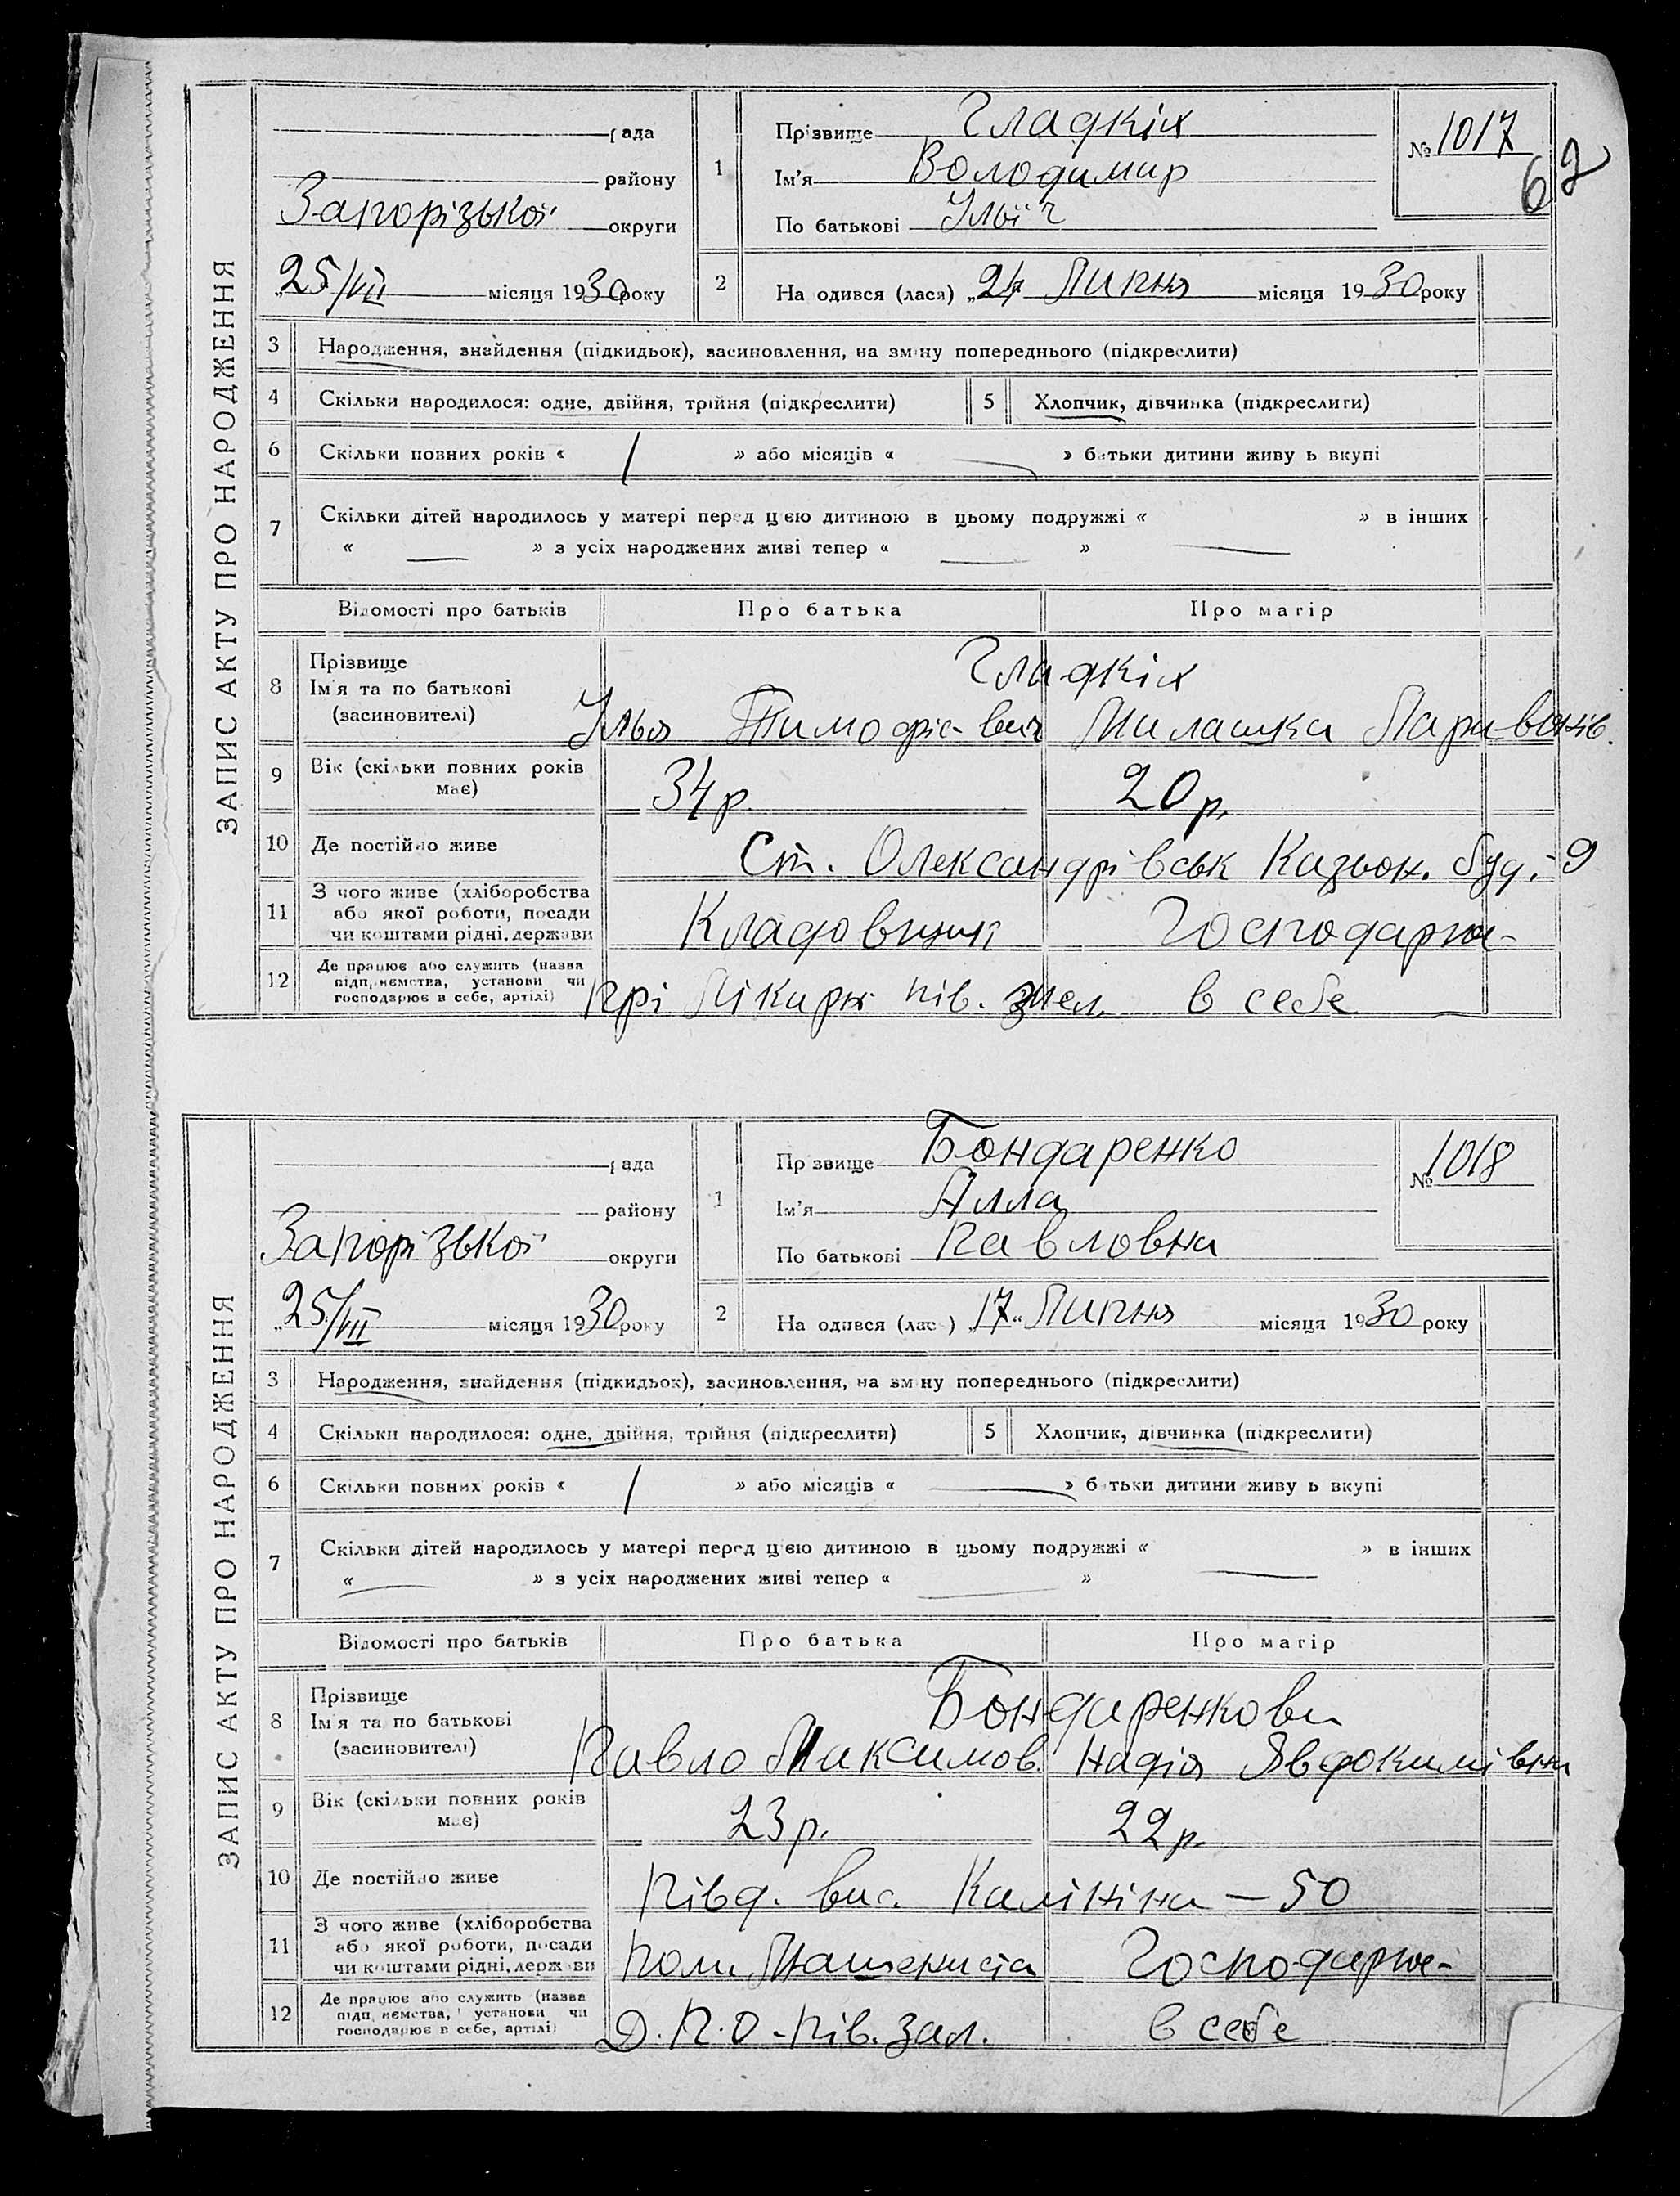 ЗАПИС АКТУ ПРО НАРОДЖЕННЯ
рада
району
Запорізької округи
„25/VII місяця 1930 року
1
Прізвище Гладкіх
Ім'я Володимир
По батькові Ільїч
№ 1017
62
2
На одився (лася) „24 Липня місяця 1930 року
3 Народження, знайдення (підкидьок), засиновлення, на зміну попереднього (підкреслити)
4 Скільки народилося: одне, двійня, трійня (підкреслити) 5 Хлопчик, дівчинка (підкреслити)
6 Скільки повних років « / » або місяців « — » батьки дитини живу ь вкупі
7 Скільки дітей народилось у матері перед цією дитиною в цьому подружжі « » в інших
« — » з усіх народжених живі тепер « — » —
Відомості про батьків Про батька Про матір
8 Прізвище
Ім'я та по батькові
(засиновителі)
Гладкіх
Ілья Тимофієвич Милашка Ларивонів.
9 Вік (скільки повних років має) 34 р. 20 р.
10 Де постійно живе Ст. Олександрівськ Казьон. буд. 9
11 З чого живе (хліборобства
або якої роботи, посади
чи коштами рідні, держави
Кладовщик Господарює
12 Де працює або служить (назва
підприємства, установи чи
господарює в себе, артілі)
прі Лікарн. пів. в себе
ЗАПИС АКТУ ПРО НАРОДЖЕННЯ
рада
району
Запорізької округи
„25/VII місяця 1930 року
1
Пр звище Бондаренко
Ім'я Алла
По батькові Павловна
№ 1018
2
На одився (лас ) „17“ Липня місяця 1930 року
3 Народження, знайдення (підкидьок), засиновлення, на зміну попереднього (підкреслити)
4 Скільки народилося: одне, двійня, трійня (підкреслити) 5 Хлопчик, дівчинка (підкреслити)
6 Скільки повних років « / » або місяців « — » батьки дитини живу ь вкупі
7 Скільки дітей народилось у матері перед цією дитиною в цьому подружжі « » в інших
« — » з усіх народжених живі тепер « — » —
Відомості про батьків Про батька Про матір
8 Прізвище
Ім'я та по батькові
(засиновителі)
Бондаренкови
Павло Максимов. Надія Явдокимівна
9 Вік (скільки повних років має) 23 р. 22 р.
10 Де постійно живе Півд. вис. Калініна — 50
11 З чого живе (хліборобства
або якої роботи, посади
чи коштами рідні, держави
Пом. Машениста Господарює
12 Де працює або служить (назва
підприємства, установи чи
господарює в себе, артілі)
Д.П.О. Пів. зал. в себе